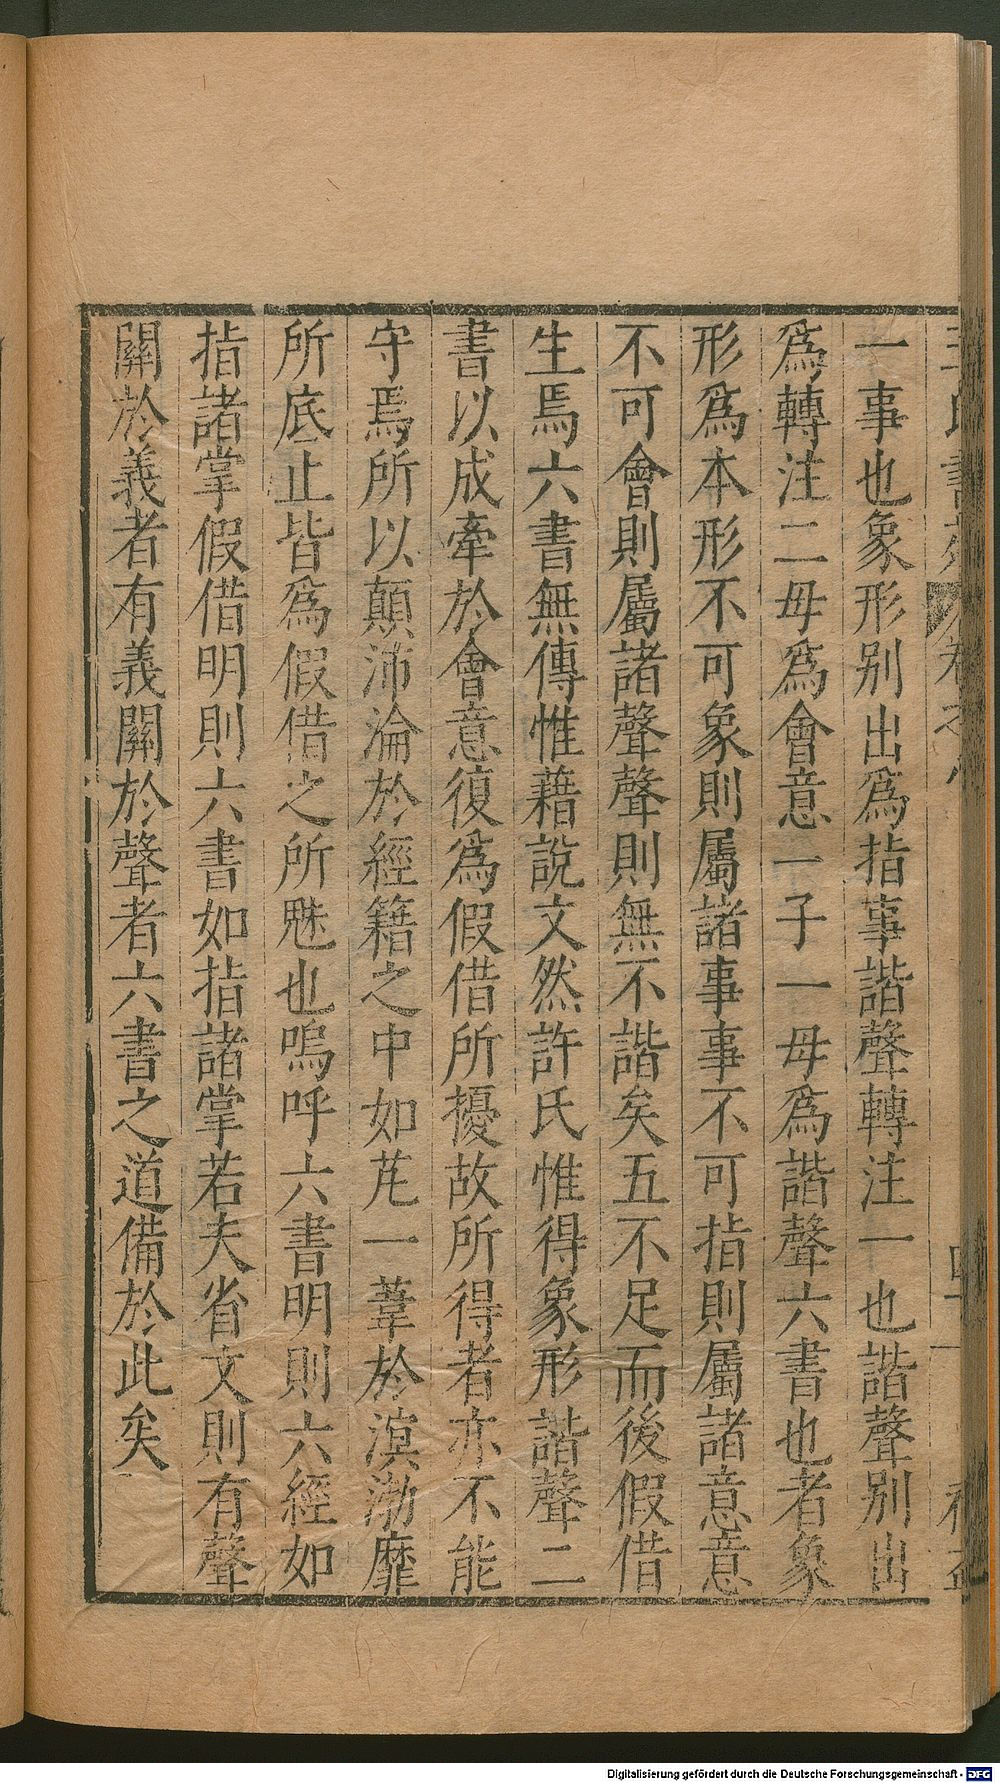 一事也象形别出爲指事諧聲轉注一也諧聲别出
爲轉注二母爲會意一子一母爲諧聲六書也者象
形爲本形不可象則屬諸事事不可指則屬諸意意
不可會則屬諸聲聲則無不諧矣五不足而後假借
生焉六書無傳惟藉說文然許氏惟得象形諧聲二
書以成牽於會意復爲假借所擾故所得者亦不能
守焉所以顛沛淪於經籍之中如芘一葦於溟渤靡
所底止皆爲假借之所魅也嗚呼六書明則六經如
指諸掌假借明則六書如指諸掌若夫省文則有聲
關於義者有義關於聲者六書之道備於此矣
Digitalisierung gefördert durch die Deutsche Forschungsgemeinschaft - DFG